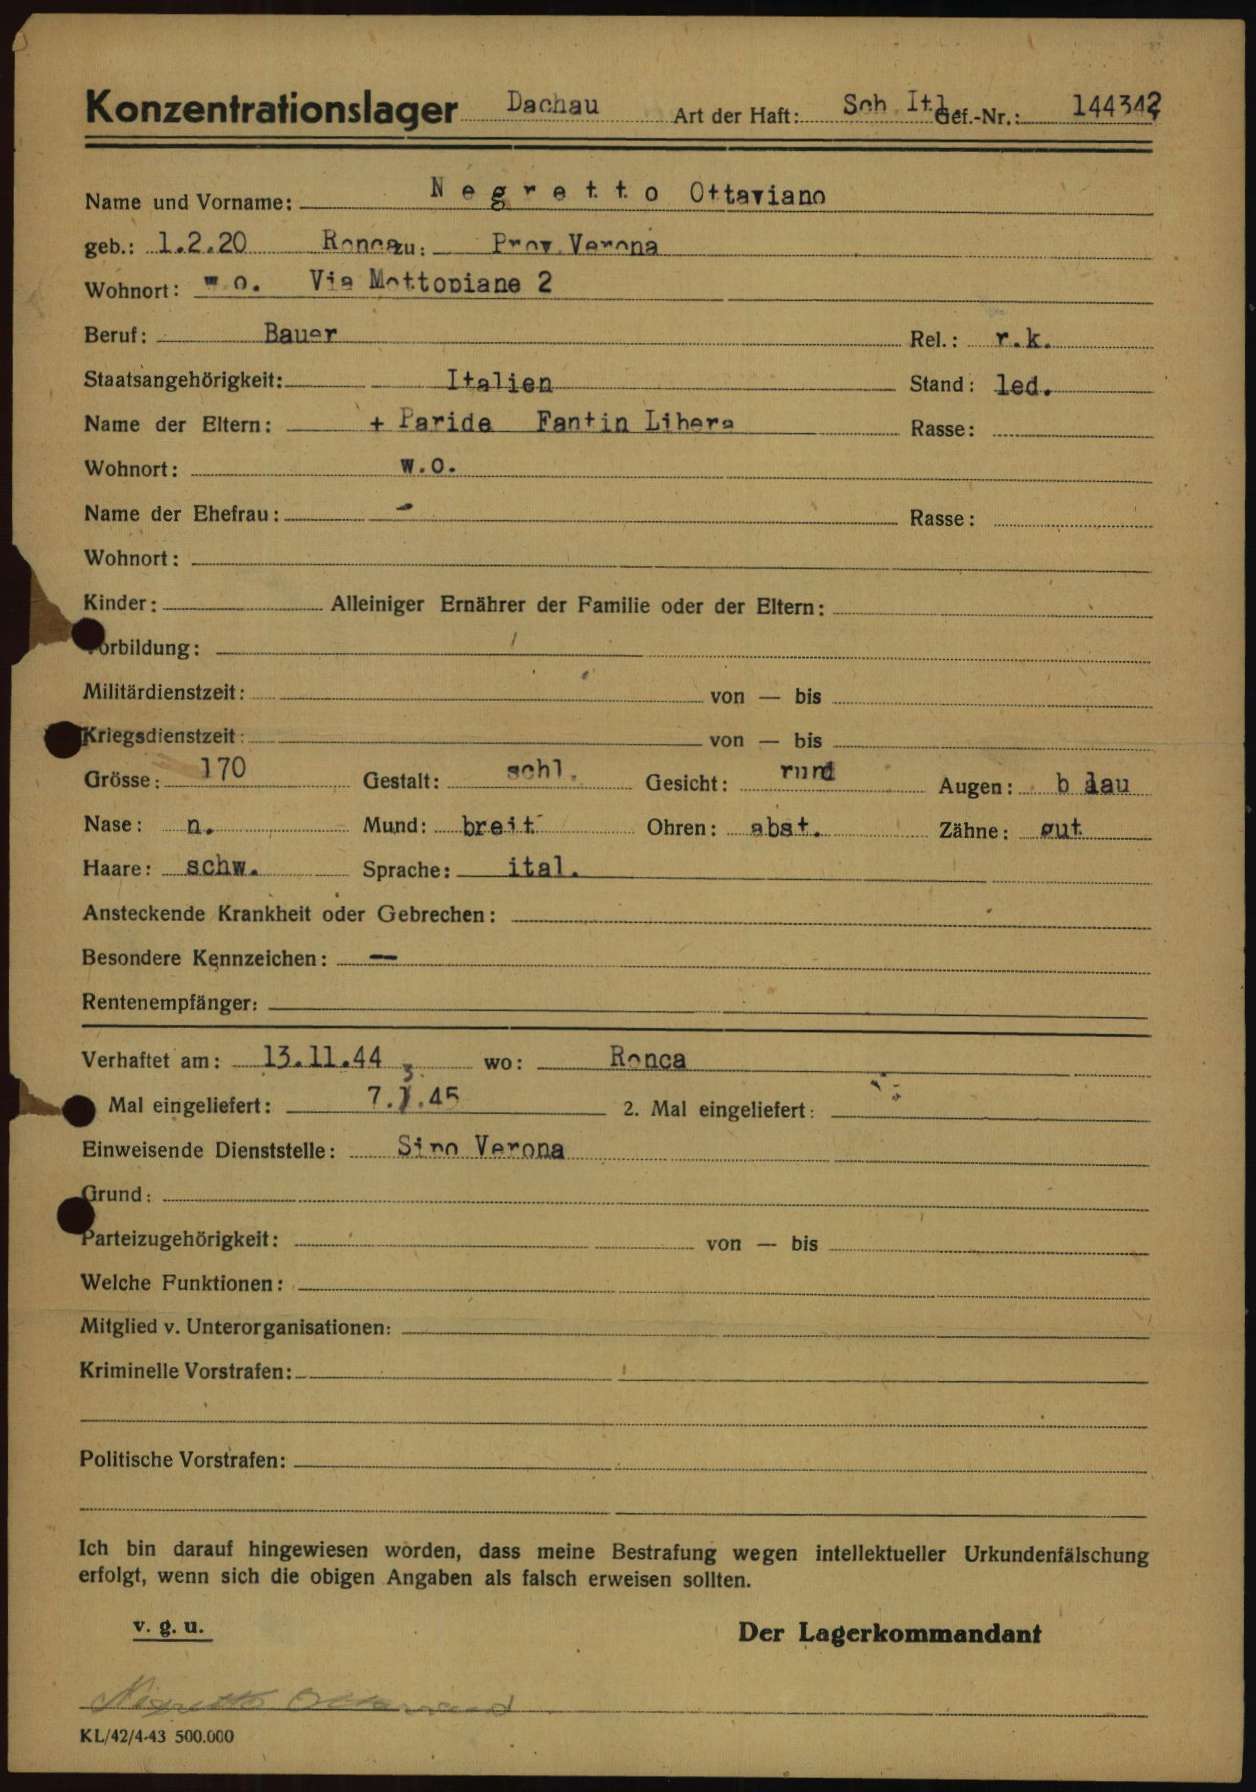 Konzentrationslager Dachau Art der Haft: Sch. Itl. Gef.-Nr.: 144342
Name und Vorname: Negretto Ottaviano
geb.: 1.2.20 Ronca zu: Prov. Verona
Wohnort: w.o. Via Mottopiane 2
Beruf: Bauer Rel.: r.k.
Staatsangehörigkeit: Italien Stand: led.
Name der Eltern: + Paride Fantin Libera Rasse:
Wohnort: w.o.
Name der Ehefrau: - Rasse:
Wohnort:
Kinder: Alleiniger Ernährer der Familie oder der Eltern:
Vorbildung:
Militärdienstzeit: von — bis
Kriegsdienstzeit: von — bis
Grösse: 170 Gestalt: schl. Gesicht: rund Augen: blau
Nase: n. Mund: breit Ohren: abst. Zähne: gut
Haare: schw. Sprache: ital.
Ansteckende Krankheit oder Gebrechen:
Besondere Kennzeichen: —
Rentenempfänger:
Verhaftet am: 13.11.44 wo: Ronca
Mal eingeliefert: 7.3.45 2. Mal eingeliefert:
Einweisende Dienststelle: Sipo Verona
Grund:
Parteizugehörigkeit: von — bis
Welche Funktionen:
Mitglied v. Unterorganisationen:
Kriminelle Vorstrafen:
Politische Vorstrafen:
Ich bin darauf hingewiesen worden, dass meine Bestrafung wegen intellektueller Urkundenfälschung
erfolgt, wenn sich die obigen Angaben als falsch erweisen sollten.
v. g. u. Der Lagerkommandant
Negretto Ottaviano
KL/42/4-43 500.000